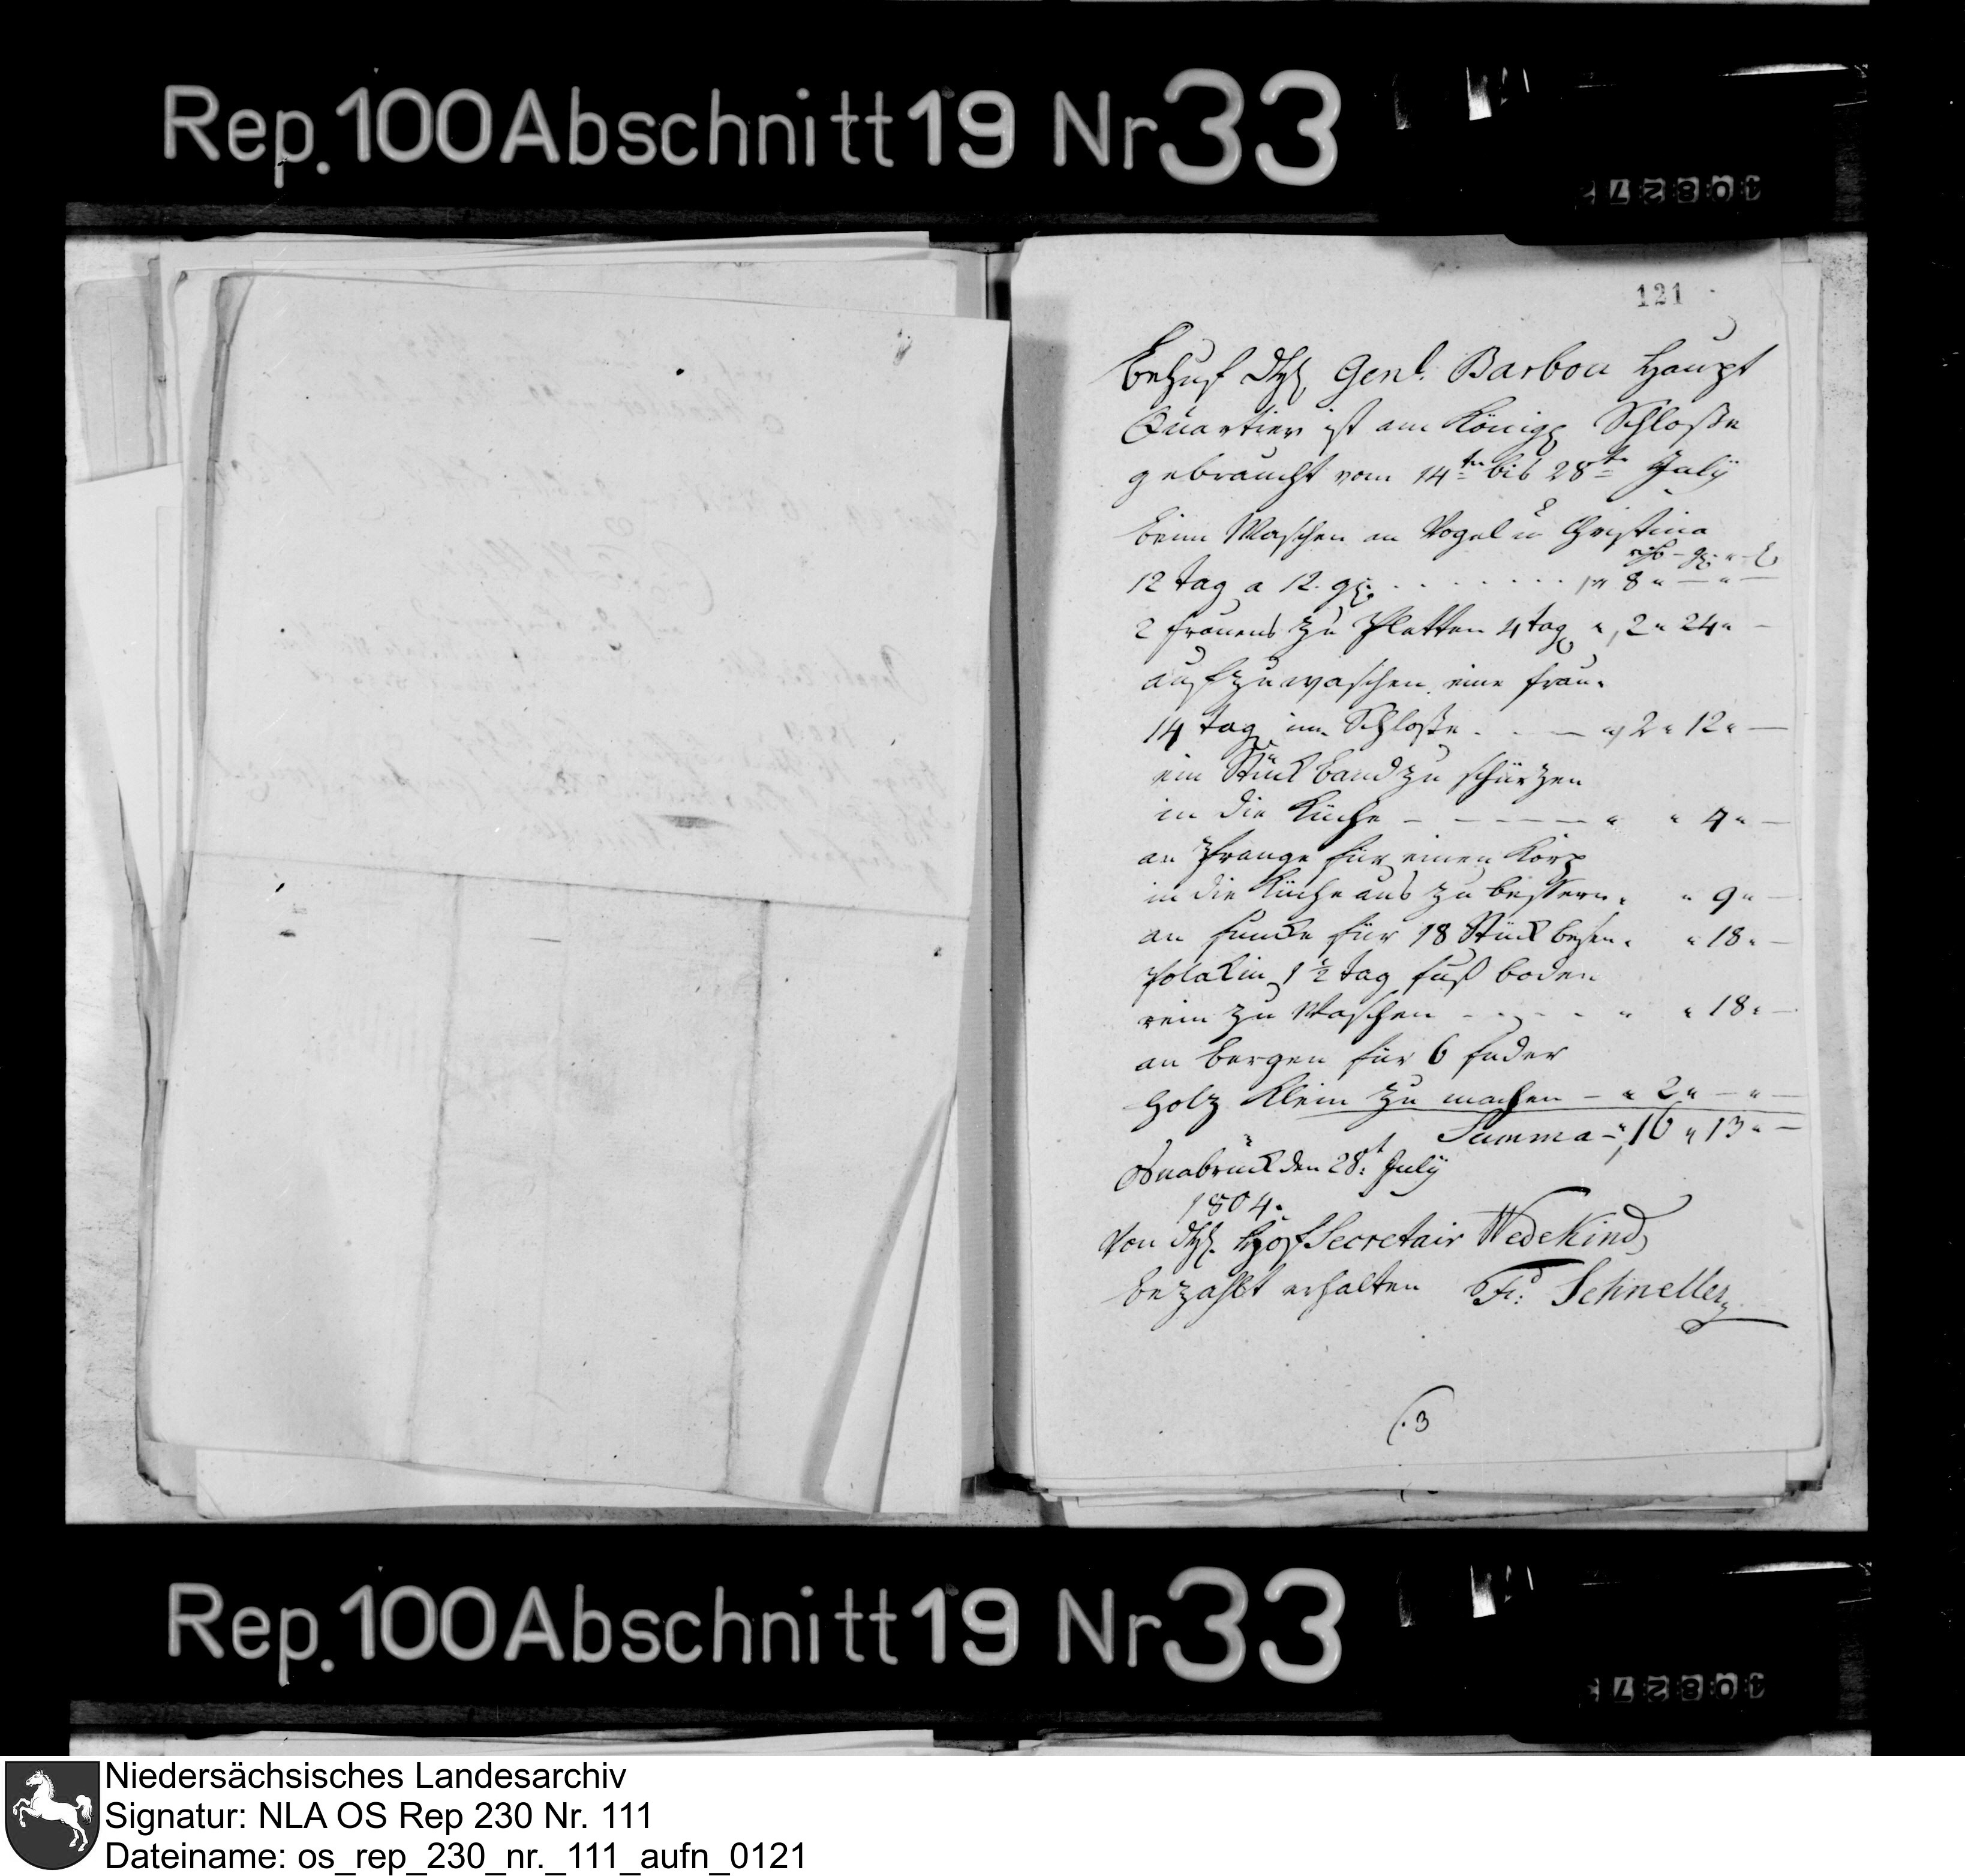 Rep. 100 Abschnitt 19 Nr 33
121
Behuf Gen. Barbou Haupt
Quartier ist am Königl Schloße
gebraucht vom 14ten bis 28ten July
beim Waschen an Vogel u Christina
12 tag a 12 gl. 8 " — " —
2 frauens zu Pletten 4 tag " 2 " 24 " —
aufzuwaschen eine frau
14 tag im Schloße — 2 " 12 " —
ein Stück band zu schürzen
in die Küche — — — — — " " 4 " —
an Prange für einen Korp
in die Küche aus zu bessern " " 9 " —
an Funcke für 18 Stück besen " " 18 " —
Polakin 1 ½ tag fuß boden
rein zu Waschen — — — " " 18 " —
an bergen für 6 fuder
Holz klein zu machen — " 2 " — " —
Summa — 16 " 13 " —
Osnabrück den 28t July
1804.
Von Hof Secretair Wedekind
bezahlt erhalten Fr: Schneller
3
Rep. 100 Abschnitt 19 Nr 33
Niedersächsisches Landesarchiv
Signatur: NLA OS Rep 230 Nr. 111
Dateiname: os_rep_230_nr._111_aufn_0121